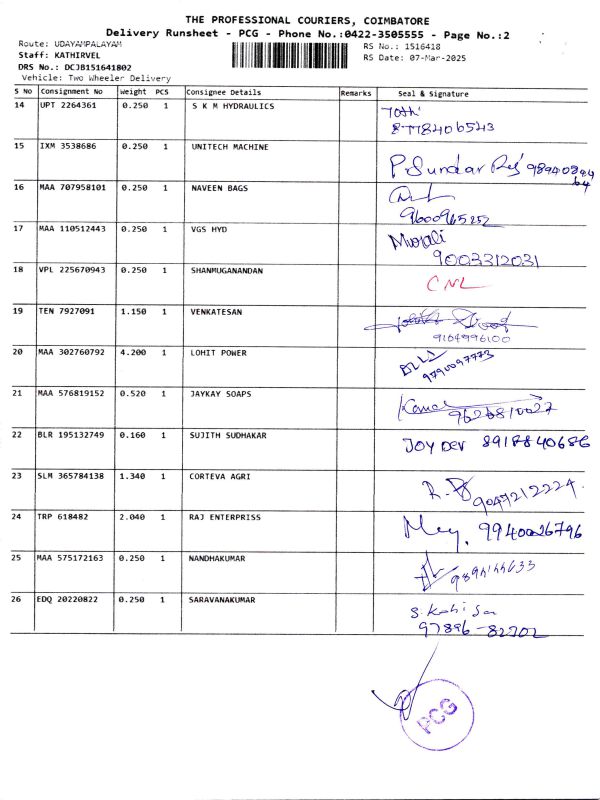 THE PROFESSIONAL COURIERS, COIMBATORE
Delivery Runsheet - PCG - Phone No.:0422-3505555 - Page No.:2
Route: UDAYAMPALAYAM
RS No.: 1516418
Staff: KATHIRVEL
RS Date: 07-Mar-2025
DRS No.: DCJB151641802
Vehicle: Two Wheeler Delivery
S No Consignment No Weight PCS Consignee Details Remarks Seal & Signature
14 UPT 2264361 0.250 1 S K M HYDRAULICS
8778406543
15 IXM 3538686 0.250 1 UNITECH MACHINE
P. Sundar Raj
16 MAA 707958101 0.250 1 NAVEEN BAGS
9600965252
17 MAA 110512443 0.250 1 VGS HYD
Murali
9003312031
18 VPL 225670943 0.250 1 SHANMUGANANDAN
CNL
19 TEN 7927091 1.150 1 VENKATESAN
9164996100
20 MAA 302760792 4.200 1 LOHIT POWER
9790097773
21 MAA 576819152 0.520 1 JAYKAY SOAPS
Kamal
22 BLR 195132749 0.160 1 SUJITH SUDHAKAR
JOY DEV
23 SLM 365784138 1.340 1 CORTEVA AGRI
9047212224
24 TRP 618482 2.040 1 RAJ ENTERPRISS
9940026796
25 MAA 575172163 0.250 1 NANDHAKUMAR
26 EDQ 20220822 0.250 1 SARAVANAKUMAR
97896-82702
PCG